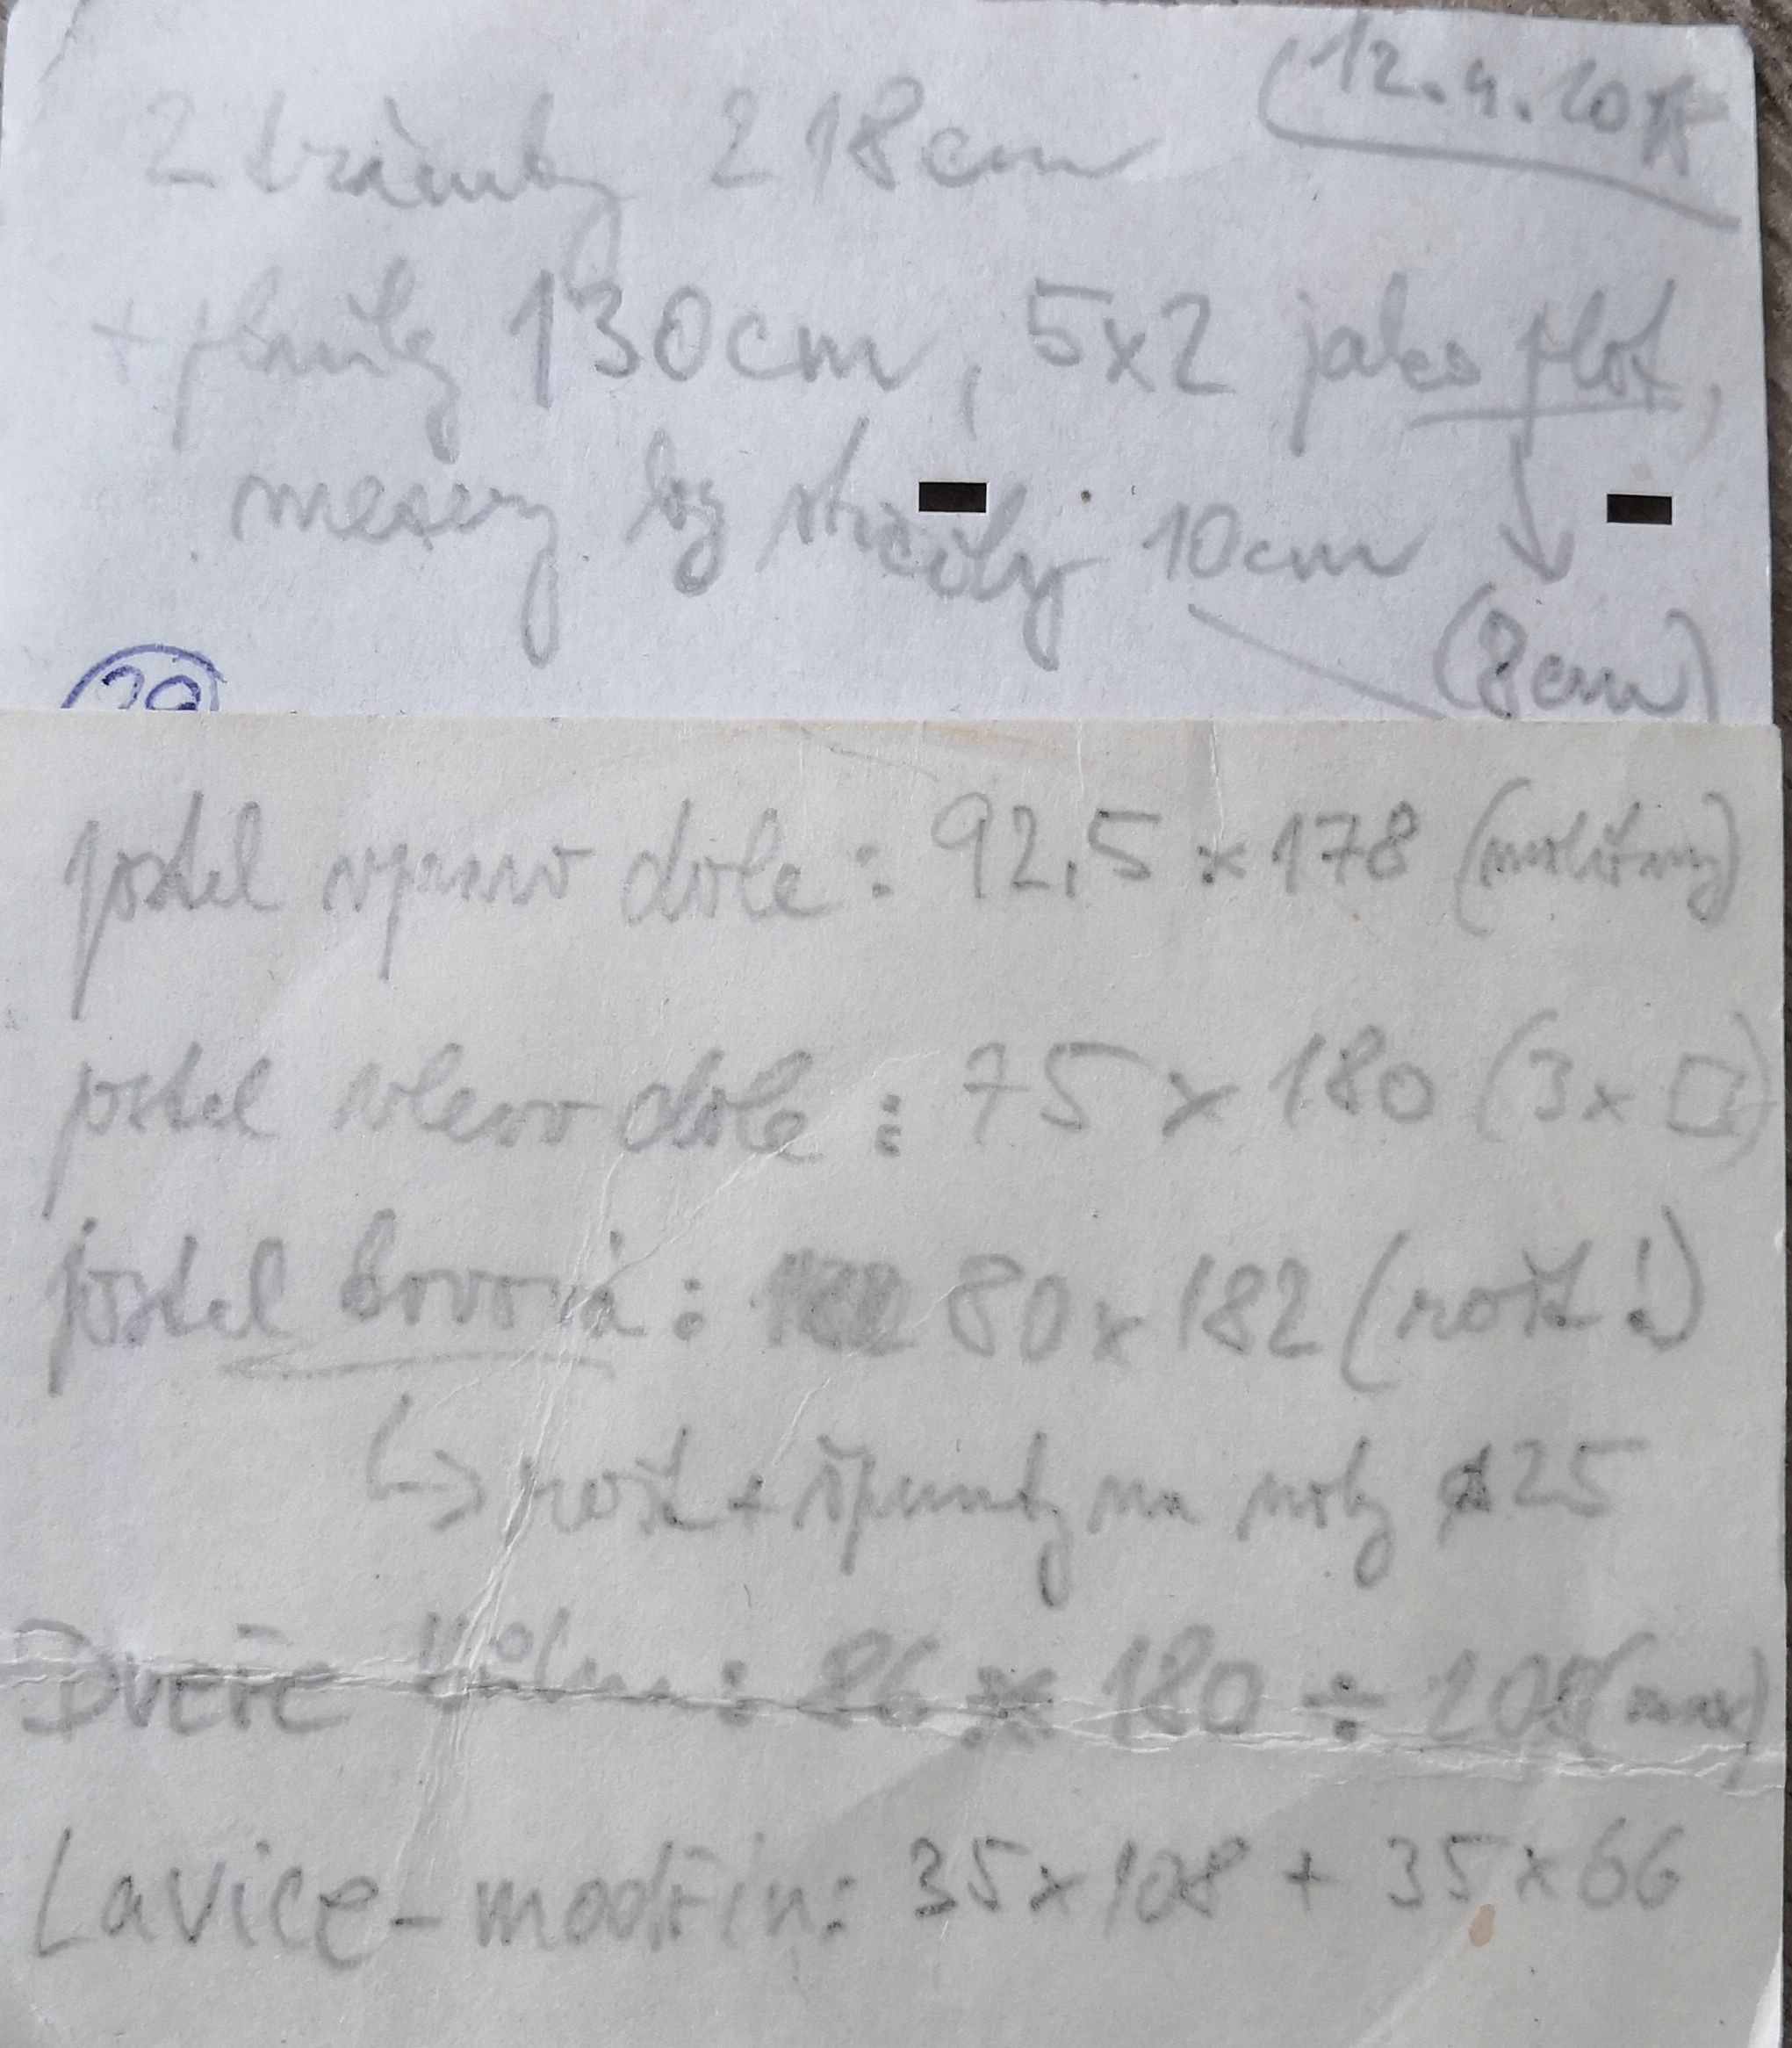 (12.4.2018
2 trámky 218cm
+ plaňky 130cm, 5x2 jako plot,
mezery by stačily 10cm
(8cm)
29
postel vpravo dole: 92,5 x 178 (molitany)
postel vlevo dole: 75 x 180 (3x □)
postel kovová: 80 x 182 (rošt!)
↳ rošt + špunty na nohy 25
Dveře kůlna: 86 x 180 ÷ 205 (max)
Lavice - modřín: 35x108 + 35x66